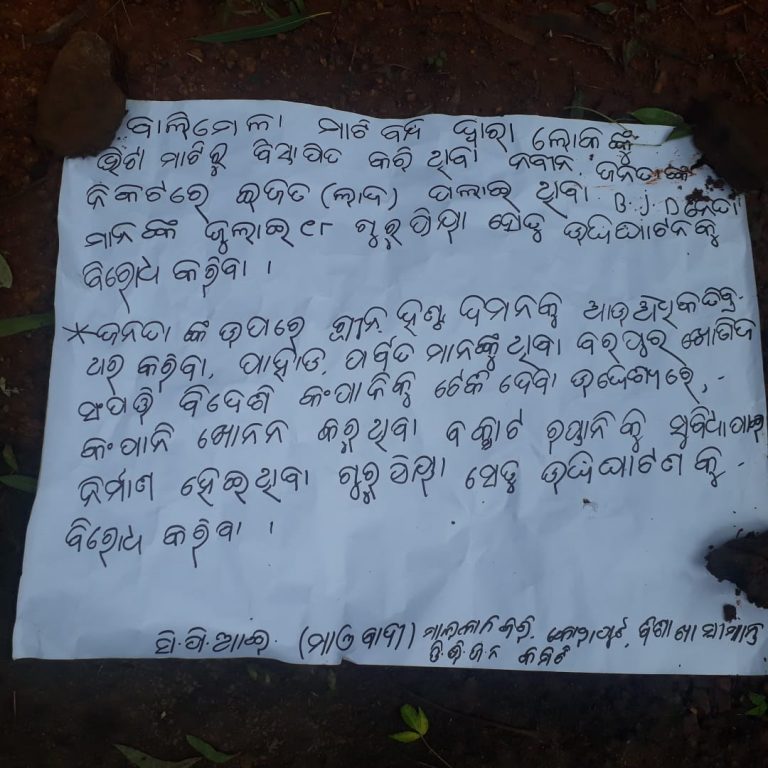 ବାଲିମେଳା ମାଟି ବନ୍ଧ ଦ୍ୱାରା ଲୋକଙ୍କୁ
ଭିଟା ମାଟିରୁ ବିସ୍ଥାପିତ କରି ଥିବା ନବୀନ, ଜନତାଙ୍କ
ନିକଟରେ ଇଜତ (ଲାଦ) ପଳାଇ ଥିବା B.J.D ନେତା
ମାନଙ୍କ ଜୁଲାଇ ୧୮ ଗୁରୁପ୍ରିୟା ସେତୁ ଉଦ୍ଘାଟନକୁ
ବିରୋଧ କରିବା ।
* ଜନତା ଙ୍କ ଉପରେ ଗ୍ରୀନ୍ ହଣ୍ଟ ଦମନକୁ ଆଉ ଅଧିକ ତିବ୍ର
ଧର କରିବା, ପାହାଡ, ପର୍ବତ ମାନଙ୍କୁ ଥିବା ଭରପୁର ଖୋଣିଜ
ସଂପତ୍ତି ବିଦେଶି କଂପାନିକୁ ଟେକି ଦେବା ଉଦ୍ଦେଶ୍ୟରେ,-
କଂପାନି ଖୋନନ କରୁଥିବା ବକ୍ସାଟ ରପ୍ତାନି କୁ ସୁବିଧା ପାଇ
ନିର୍ମାଣ ହେଇଥିବା ଗୁରୁପ୍ରିୟା ସେତୁ ଉଦ୍ଘାଟଣ କୁ -
ବିରୋଧ କରିବା ।
ସି.ପି.ଆଇ. (ମାଓବାଦୀ) ମାଲକାନଗିରି, କୋରାପୁଟ, ବିଶାଖା ସୀମାନ୍ତ
ଡିଭିଜନ କମିଟି